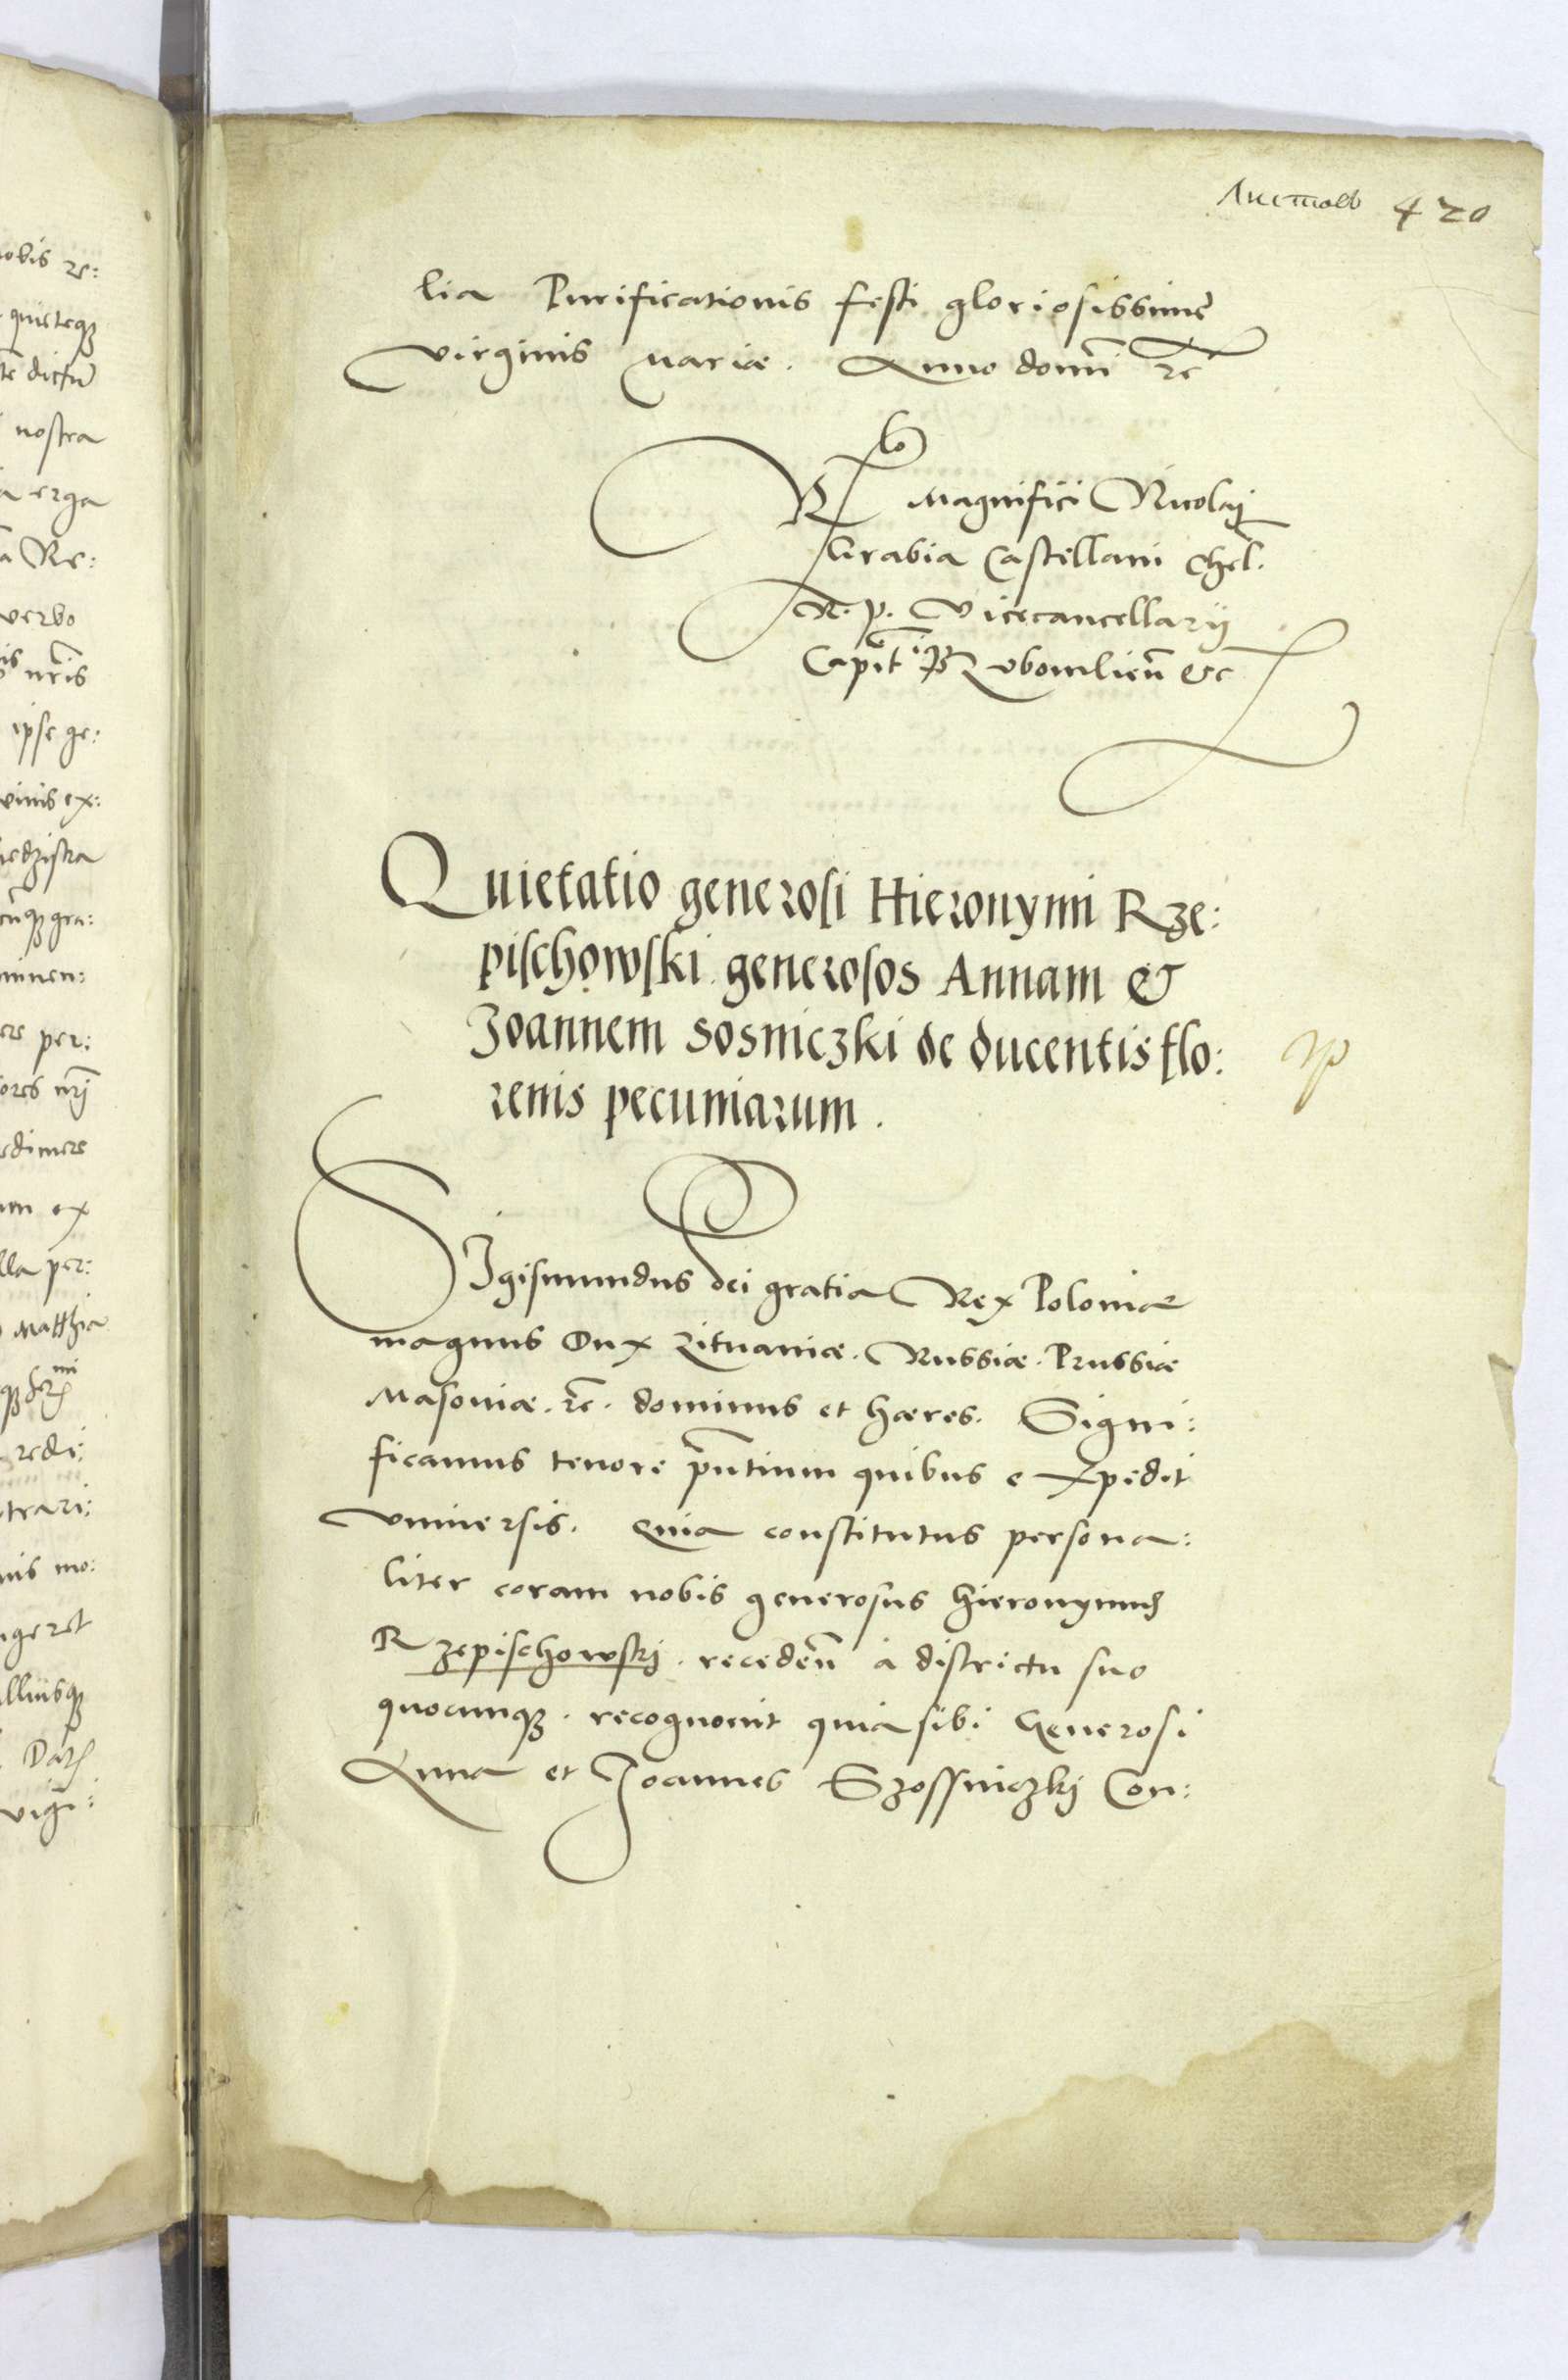 Листовъ 420
lia Purificationis festi gloriosissimę
virginis Mariæ. Anno domi͞ rc͞
Rlo Magnifici Nicolaj
Grabia Castellani Chel.
R. p. Vicecancellarij
Capit Lubomlien͞ etc
Quietatio generosi Hieronymi Rze:
pischowski generosos Annam &
Joannem Sosniczki de ducentis flo:
renis pecuniarum.
Sigismundus dei gratia Rex Poloniæ
magnus Dux Lituaniæ. Russiæ. Prussiæ
Masoviæ. rc͞. dominus et hæres. Signi:
ficamus tenore pn͞tium quibus expedit
vniversis. Quia constitutus persona:
liter coram nobis generosus Hieronymus
Rzepischowskj. receden͞ à districtu suo
quocunqꝫ. recognovit quia sibi Generosi
Anna et Joannes Szossniczkj Con:
obis re:
quieteqꝫ
nostra
a erga
a Re:
verbo
nr͞is
ipse ge:
vinis ex:
minen:
ere per:
ores nr͞j
edimere
um ex
lla per:
Matthia
redi:
trari:
nis mo:
ngeret
lliusqꝫ
Dat
vigi: